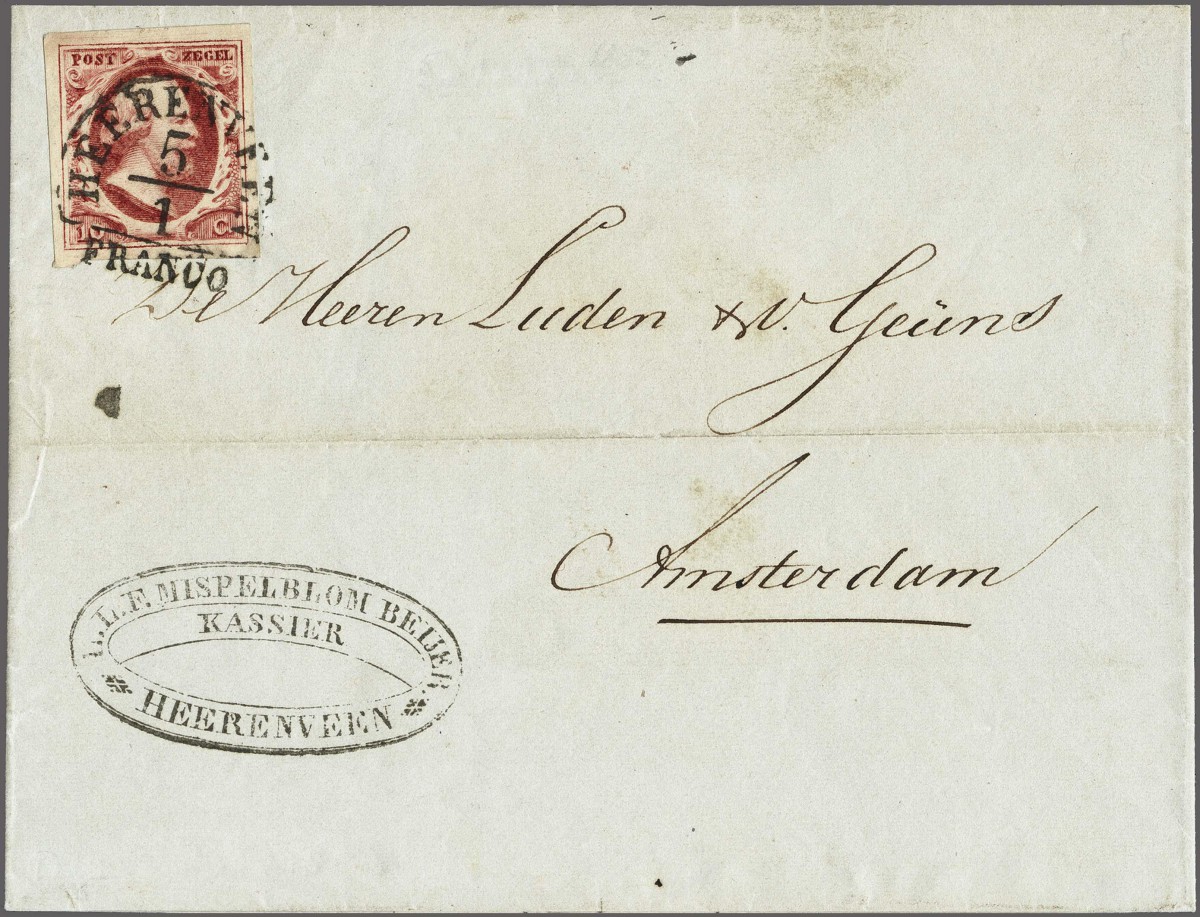 POST ZEGEL
HEERENVEEN
5
1
10 C.
FRANCO
De Heeren Luden & v. Geüns
Amsterdam
MISPELBLOM BEIJER
KASSIER
HEERENVEEN